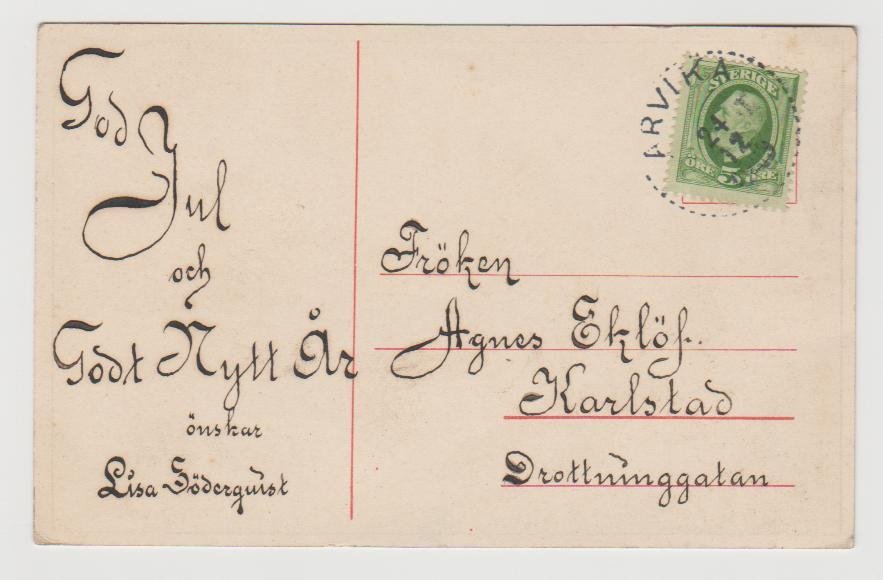 God
Jul
och
Godt Nytt År
önskar
Lisa Söderquist
ARVIKA
24
12
SVERIGE
ÖRE 5 ÖRE
Fröken
Agnes Eklöf.
Karlstad
Drottninggatan